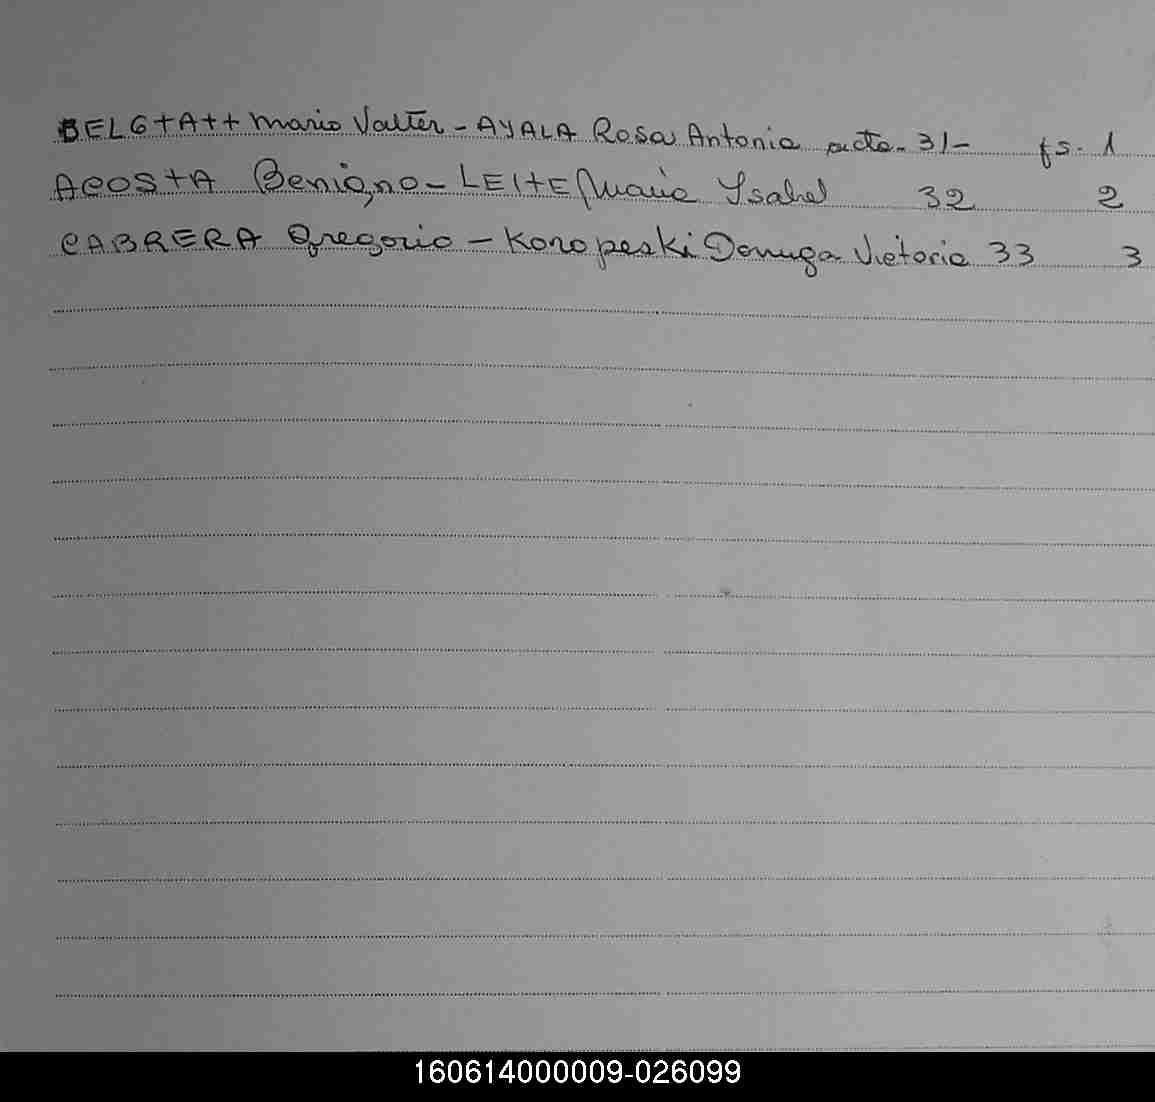 BELGTATT Mario Valter - AYALA Rosa Antonia acta - 31 - fs. 1
ACOSTA Benigno - LEITE Maria Ysabel 32 2
CABRERA Gregorio - Koropeski Victoria 33 3
160614000009-026099